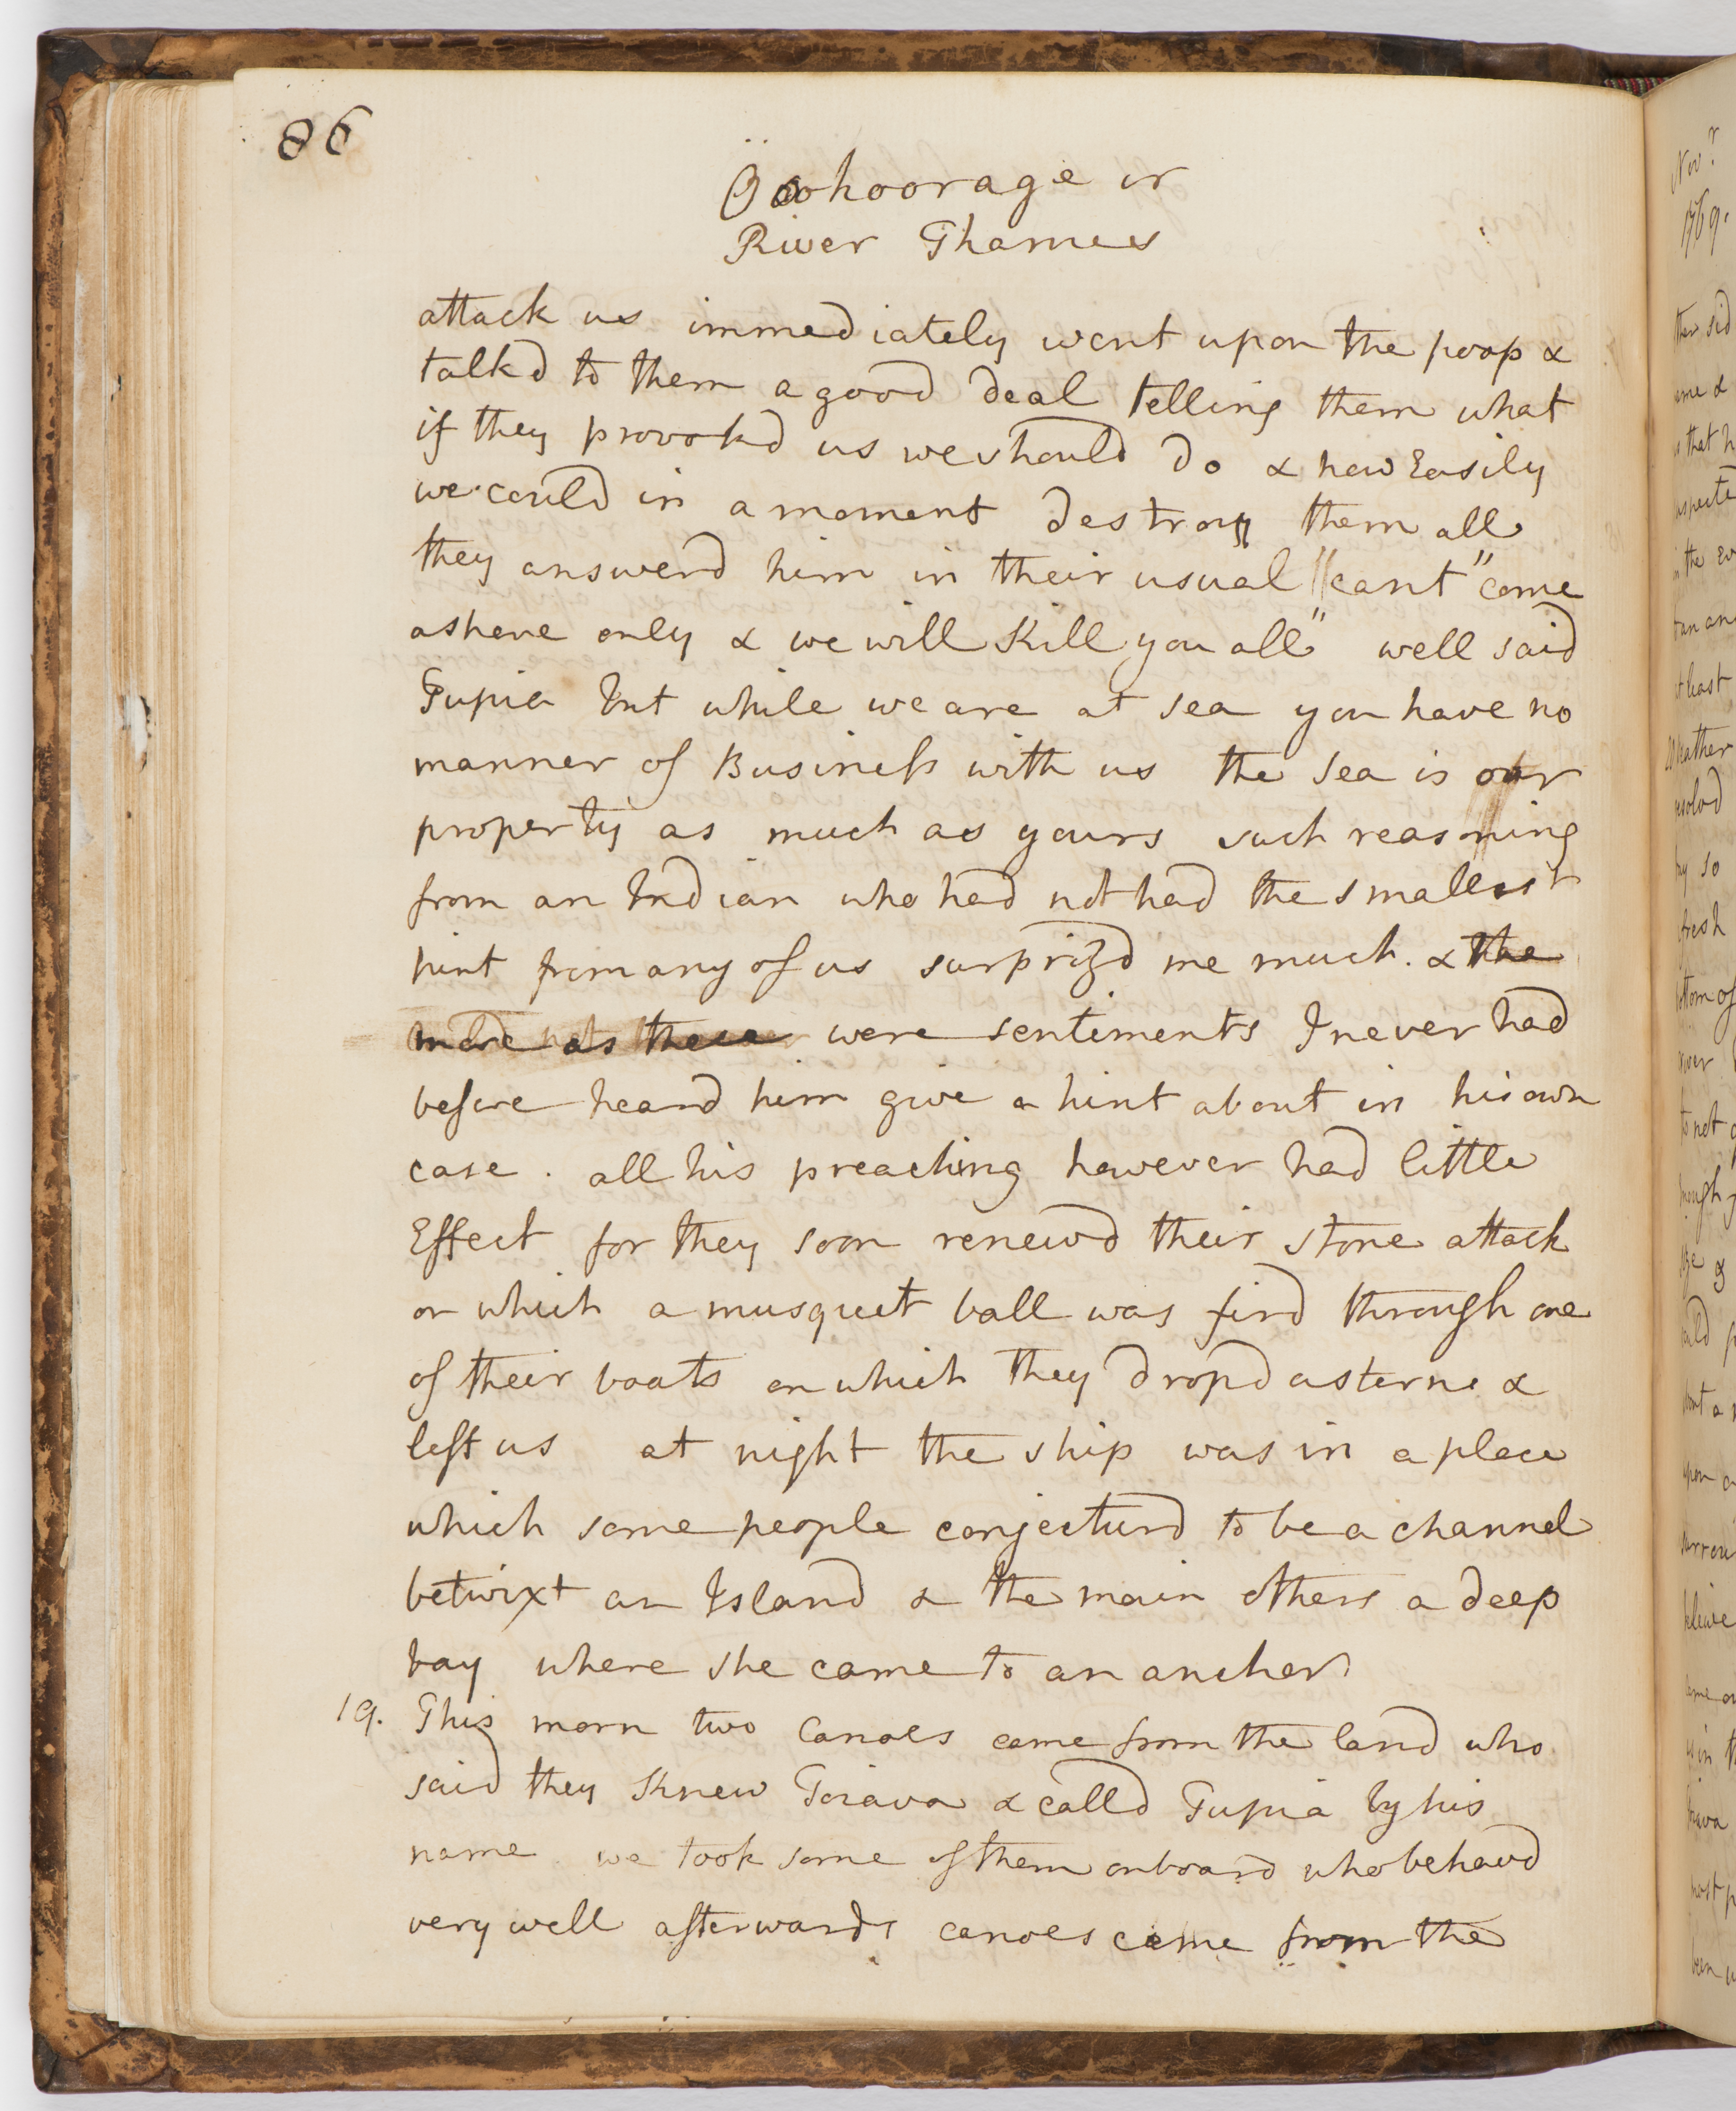 86
Öoohoorage or
River Thames
attack us immediately went upon the poop &
talkd to them a good deal telling them what
if they provokd us we should do & how Easily
we could in a moment destroy them all
they answerd him in their usual "cant" "come
ashore only & we will kill you all" well said
Tupia but while we are at sea you have no
manner of Business with us the Sea is our
property as much as yours such reasoning
from an Indian who had not had the smallest
hint from any of us surprizd me much. & the
more as these were sentiments I never had
before heard him give a hint about in his own
case. all his preaching however had little
Effect for they soon renewd their stone attack
on which a musquet ball was fird through one
of their boats on which they dropd asterne &
left us at night the ship was in a place
which some people conjecturd to be a channel
betwixt an Island & the main others a deep
bay where she came to an ancher
19. This morn two Canoes came from the land who
said they knew Toiava & calld Tupia by his
name we took some of them onboard who behavd
very well afterwards canoes came from the
Novr
1769.